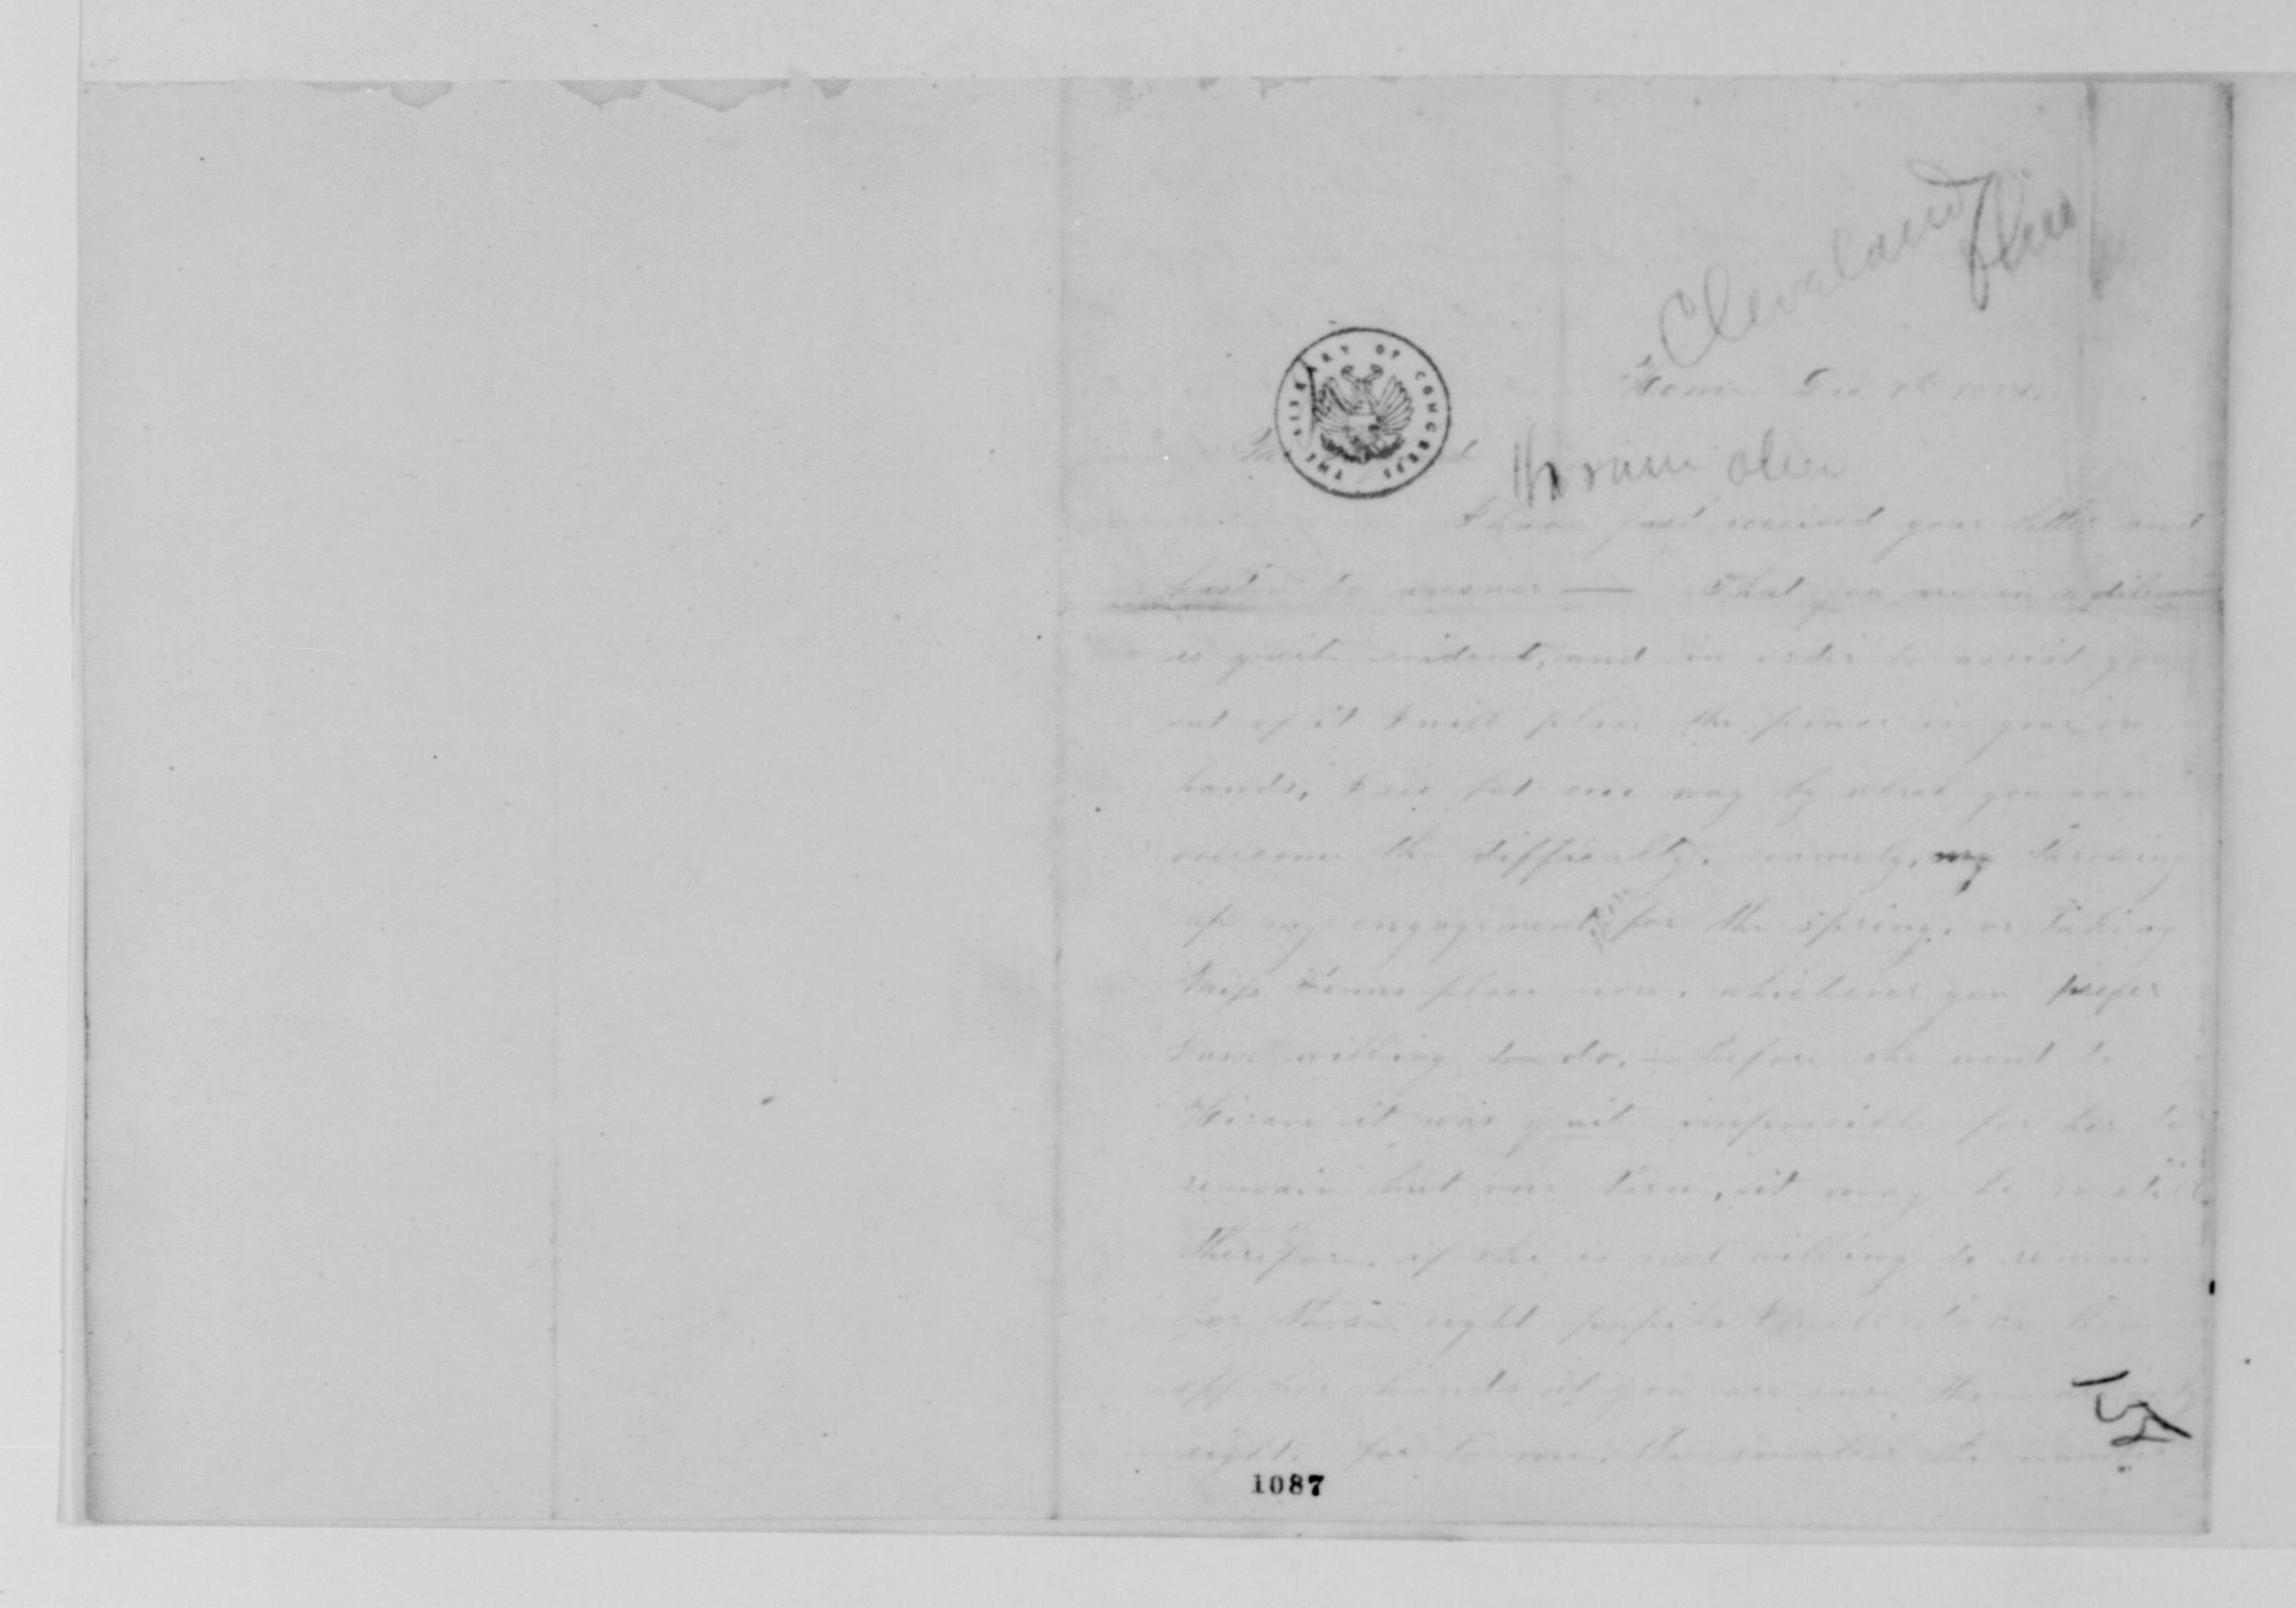 Cleveland Ohio
Home Dec
THE LIBRARY OF CONGRESS
Hiram Ohio
I have just received your letter and
hasten to answer — That you are in a dilemma
is quite evident, and in order to assist you
out of it I will place the power in your own
hands, I see but one way by which you can
overcome the difficulty, namely, my throwing
up my engagement for the spring, or taking
Miss place now, whichever you prefer
I am willing to do, — Before she went to
Hiram it was quite impossible for her to
remain but one term, it may be so still
Therefore, if she is not willing to remain
for those eight pupils I will take them
off her hands if you are sure
eight, for to me, the smaller the
1087